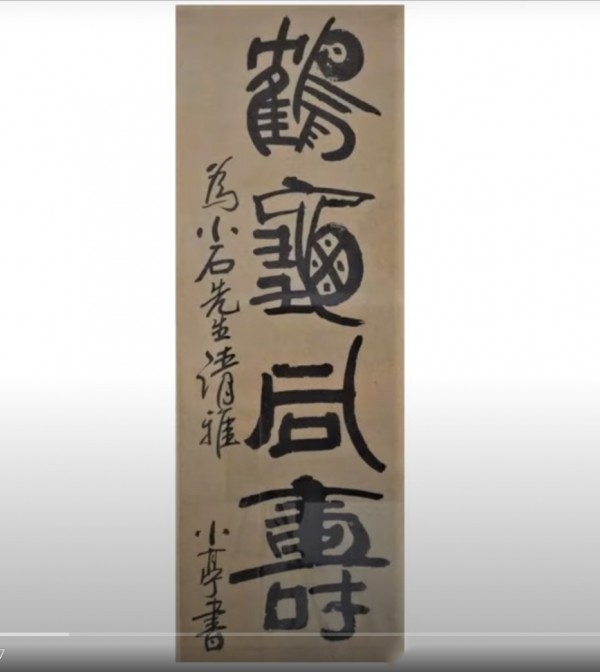 鶴龜同壽
為小石先生清雅
小亭書
7